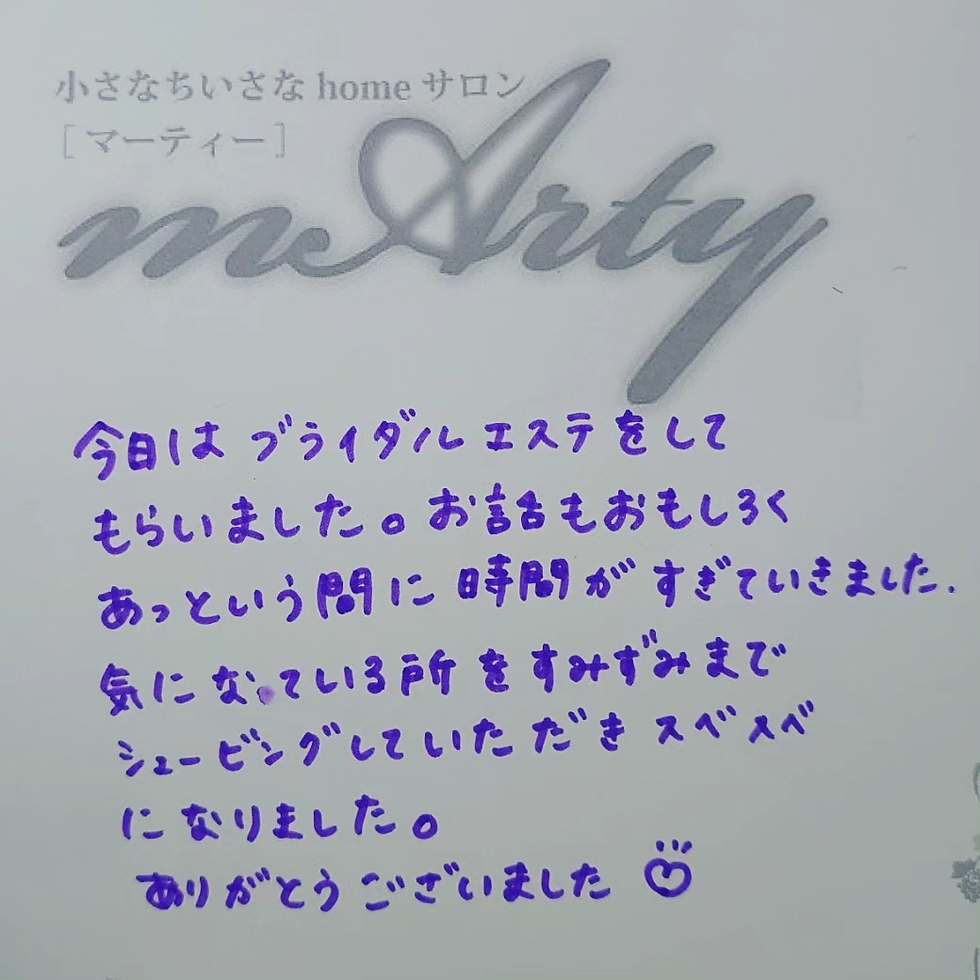 小さなちいさなhomeサロン
［マーティー］
mArty
今日はブライダルエステをして
もらいました。お話もおもしろく
あっという間に時間がすぎていきました.
気になっている所をすみずみまで
シュービングしていただきスベスベ
になりました。
ありがとうございました